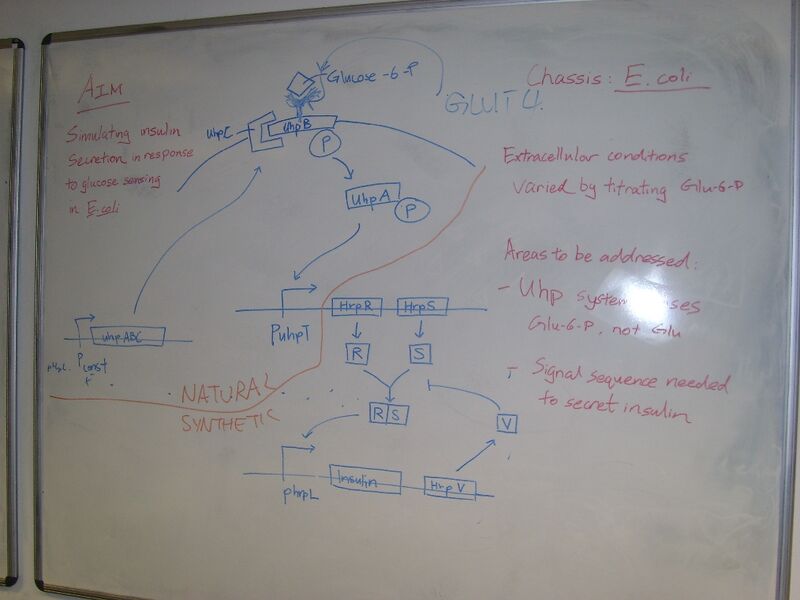 AIM
Simulating insulin
secretion in response
to glucose sensing
in E.coli
Glucose-6-P
GLUT4.
UhpC
UhpB
P
UhpA
P
PuhpT
HrpR
HrpS
R
S
RS
V
phrpL
Insulin
HrpV
uhpABC
Pconst
NATURAL
SYNTHETIC
Chassis: E.coli
Extracellular conditions
varied by titrating Glu-6-P
Areas to be addressed:
- Uhp system
Glu-6-P, not Glu
- Signal sequence needed
to secret insulin